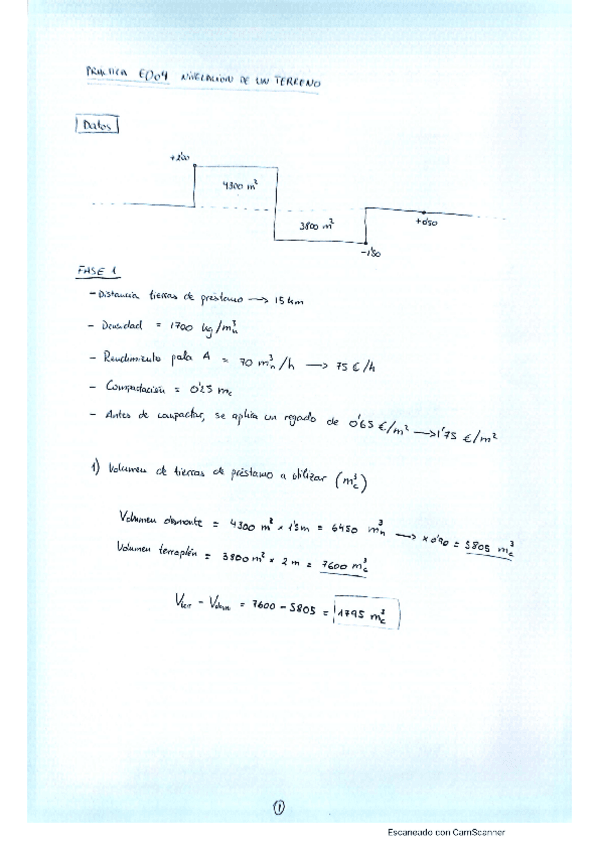 PRÁCTICA E004 NIVELACIÓN DE UN TERRENO
Datos
+2'00
4300 m²
3800 m²
+0'50
-1'50
FASE 1
- Distancia tierras de préstamo → 15 km
- Densidad = 1700 kg/m³n
- Rendimiento pala A = 70 m³n/h → 75 €/h
- Compactación = 0'25 mc
- Antes de compactar, se aplica un regado de 0'65 €/m² → 1'75 €/m²
1) Volumen de tierras de préstamo a utilizar (m³c)
Volumen desmonte = 4300 m² x 1'5m = 6450 m³n → x 0'90 = 5805 m³c
Volumen terraplén = 3800 m² x 2 m = 7600 m³c
Vterr - Vdesm = 7600 - 5805 = 1795 m³c
1
Escaneado con CamScanner